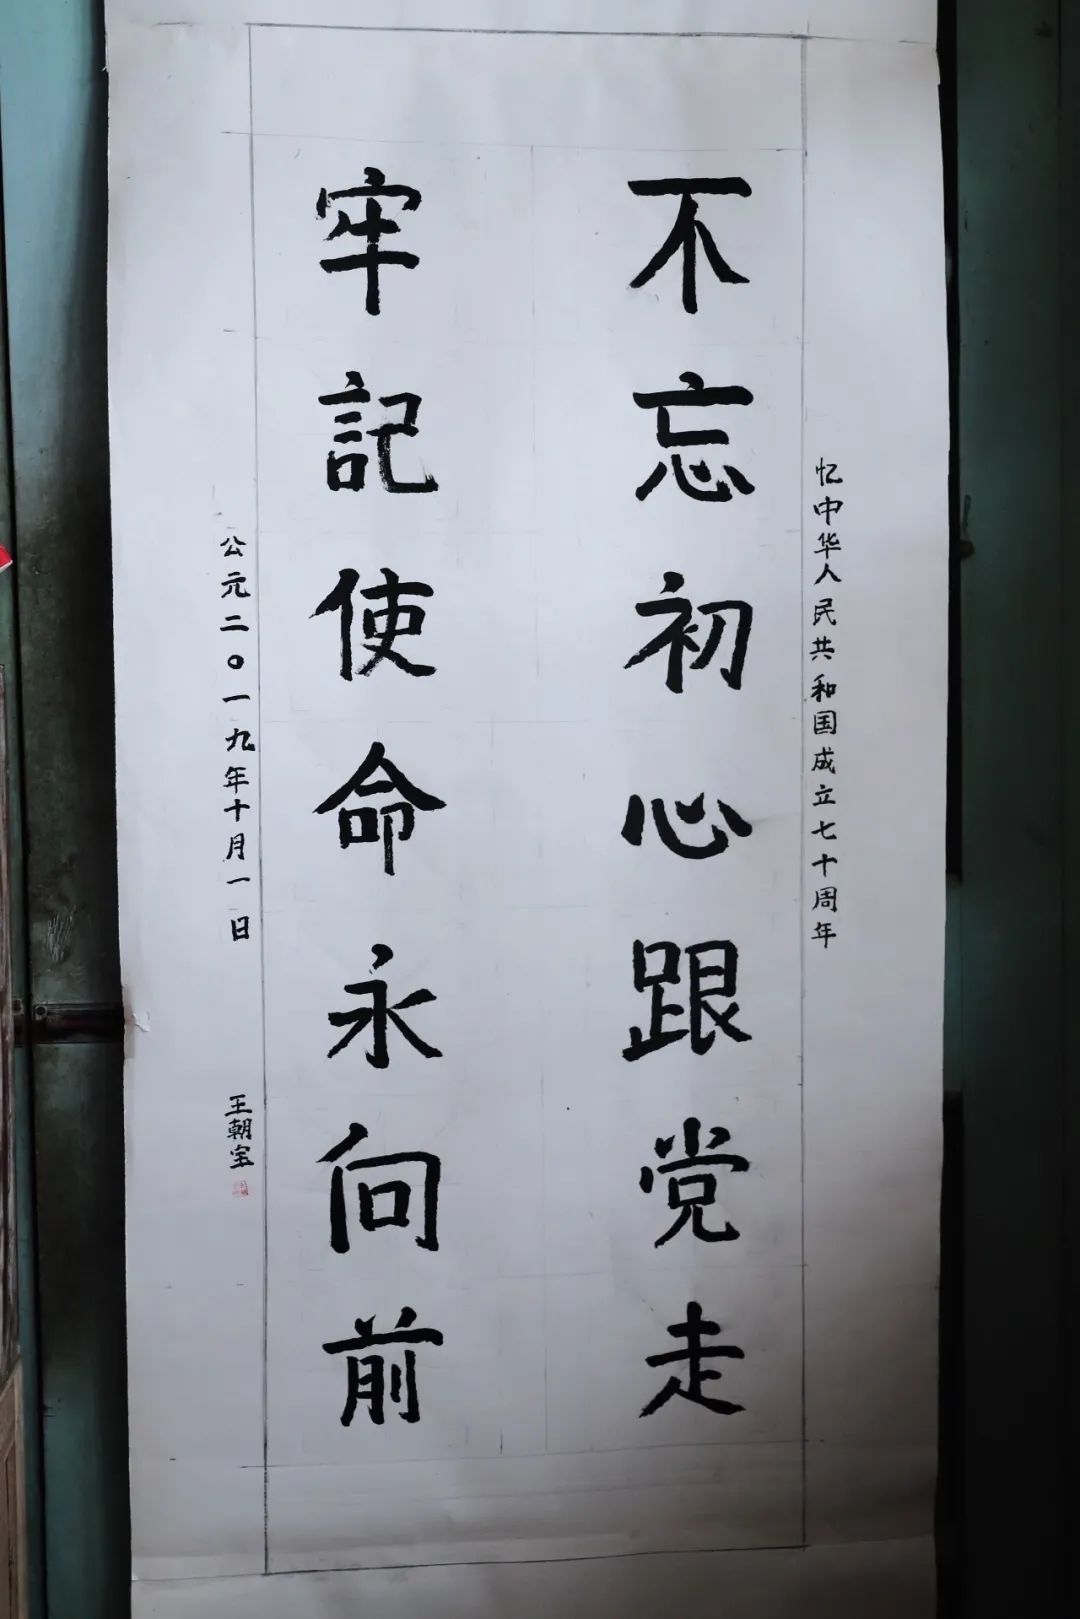 忆中华人民共和国成立七十周年
不忘初心跟党走
牢記使命永向前
公元二〇一九年十月一日
王朝宝